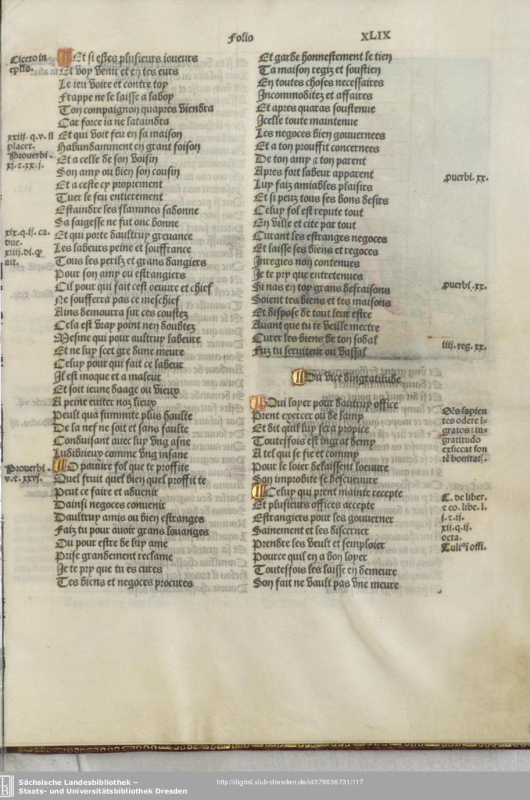 Folio XLIX
Cicero in
epl̃is.
xxiii. q. v. si
placet.
Prouerbi.
xi. ⁊ xx. i.
xix. q. ij. ca.
due.
xiiii. di. q̃
ait.
Prouerbi.
v. ⁊ xxvj.
Et si estes plusieurs ioueurs
Et voy venir et en tes eurs
Le ieu voire et contre toy
Frappe ne le laisse a laboy
Ton compaignon quapres viendra
Car force ia ne lataindra
Et qui voit feu en sa maison
Habundamment en grant foison
Et a celle de son voisin
Son amy ou bien son cousin
Et a ceste cy proprement
Tuer le feu entierement
Estaindre les flammes sadonne
Sa saigesse ne fut onc bonne
Et qui porte daultruy greuance
Les labeurs peine et souffrance
Tous les perilz et grans dangiers
Pour son amy ou estrangiers
Cil pour qui fait cest oeuure et chief
Ne souffrera pas ce meschief
Ains demourra sur ces coustez
Cela est vray point nen doubtez
Mesme qui pour aultruy labeure
Et ne luy scet gre dune meure
Celuy pour qui fait ce labeur
Il est moque et a maleur
Et soit ieune daage ou vieux
A peine euiter noz lieux
Peult qua summite plus haulte
De la nef ne soit et sans faulte
Conduisant auec luy vng asne
Ludibrieux comme vng insane
O paoure fol que te proffite
Quel fruit quel bien quel proffit te
Peut ce faire et aduenir
Dainsi negoces conuenir
Daultruy amis ou bien estranges
Faiz tu pour auoir grans louanges
Ou pour estre de luy ame
Prise grandement reclame
Je te pry que tu es cures
Tes biens et negoces procures
Et garde honnestement le tien
Ta maison regiz et soustien
En toutes choses necessaires
Incommoditez et affaires
Et apres quauras soustenue
Icelle toute maintenue
Les negoces bien gouuernees
Et a ton prouffit concernees
De ton amy ⁊ ton parent
Apres soit labeur apparent
Luy faiz amiables plaisirs
Et si peuz tous ses bons desirs
Celuy fol est repute tout
En ville et cite par tout
Curant les estranges negoces
Et laisse ses biens et negoces
In regies non contenues
Je te pry que entretenues
Si nas en toy grans desraisons
Soient tes biens et tes maisons
Et dispose de tout leur estre
Auant que tu te veille mettre
Curer les biens de ton sodal
Faiz tu seruiteur ou vassal
Du vice dingratitude
Qui loyer pour daultruy office
Prent exercer ou de samy
Et dit quil luy sera propice
Toutesfois est ingrat demy
A tel qui se fie et commy
Pour le loier delaissent loeuure
Son improbite se descueuure
Celuy qui prent mainte recepte
Et plusieurs offices accepte
Estrangiers pour les gouuerner
Sainement et les discerner
Prendre les veult et semploier
Pource quil en a bon loyer
Toutesfois les laisse en demeure
Son fait ne vault pas vne meure
ꝓuerbi. xx.
ꝓuerbi. xx.
iiii. reg. xx.
Oẽs sapien
tes odere i
gratos: in
gratitudo
exiccat fon
tẽ bonitat.
C. de liber.
⁊ eo. libe. l.
j. ⁊ ij.
xii. q. ij.
octa.
Tulli9 offi.
Sächsische Landesbibliothek –
Staats- und Universitätsbibliothek Dresden
http://digital.slub-dresden.de/id378636731/117